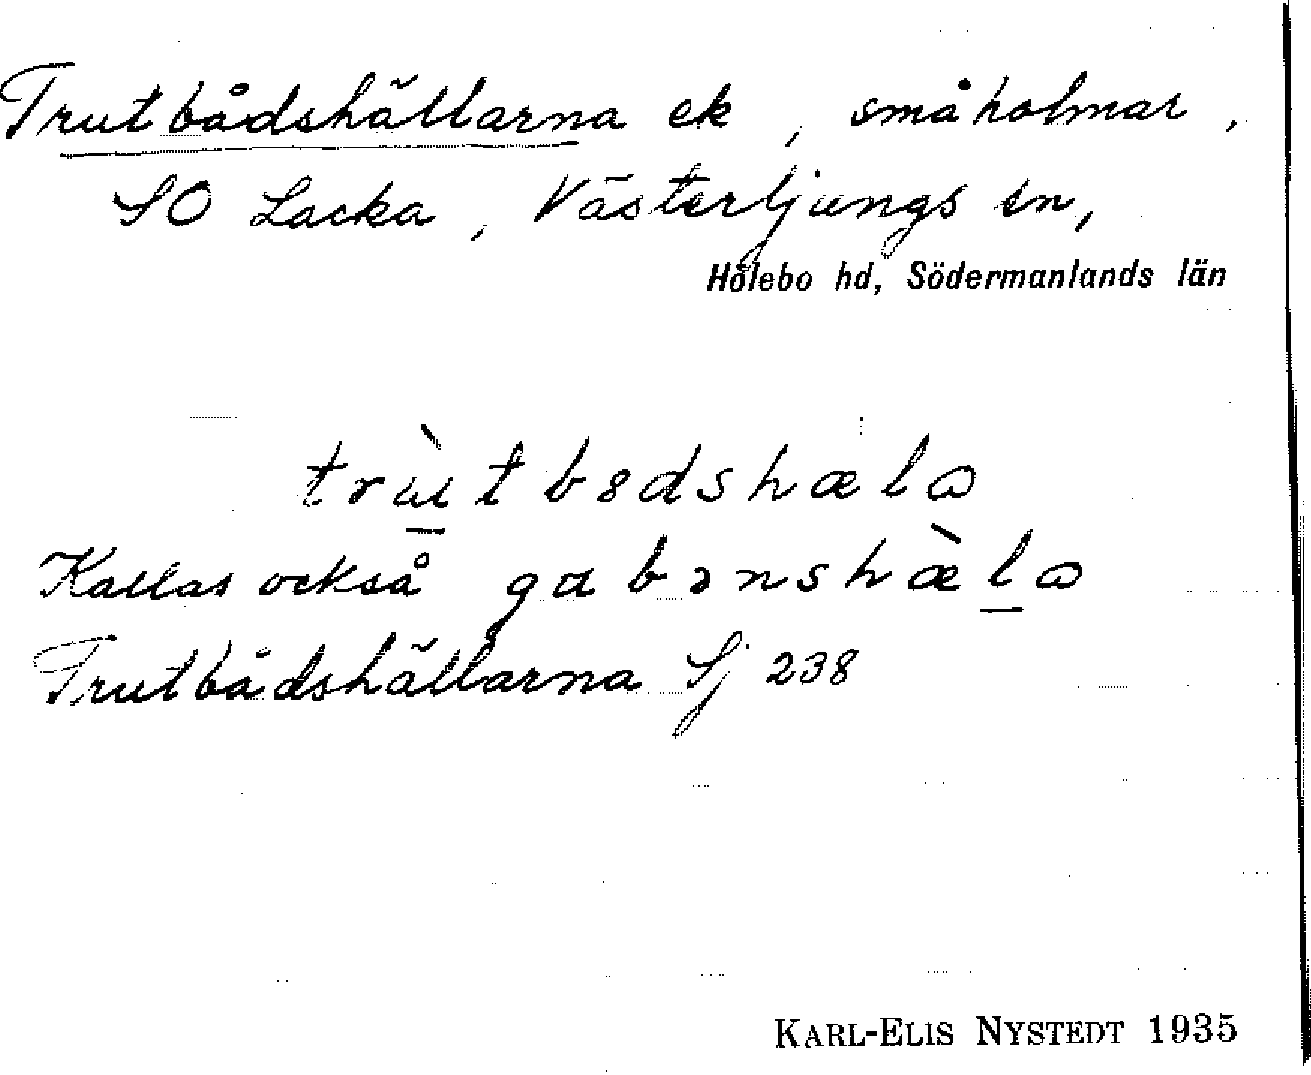 Trutbådshällarna ek, småholmar,
SO Lacka, Västerljungs sn,
Hölebo hd, Södermanlands län
trùtbɵdshælɷ
Kallas också gɑbɔnshæ̀lɷ
Trutbådshällarna Sj 238
KARL-ELIS NYSTEDT 1935